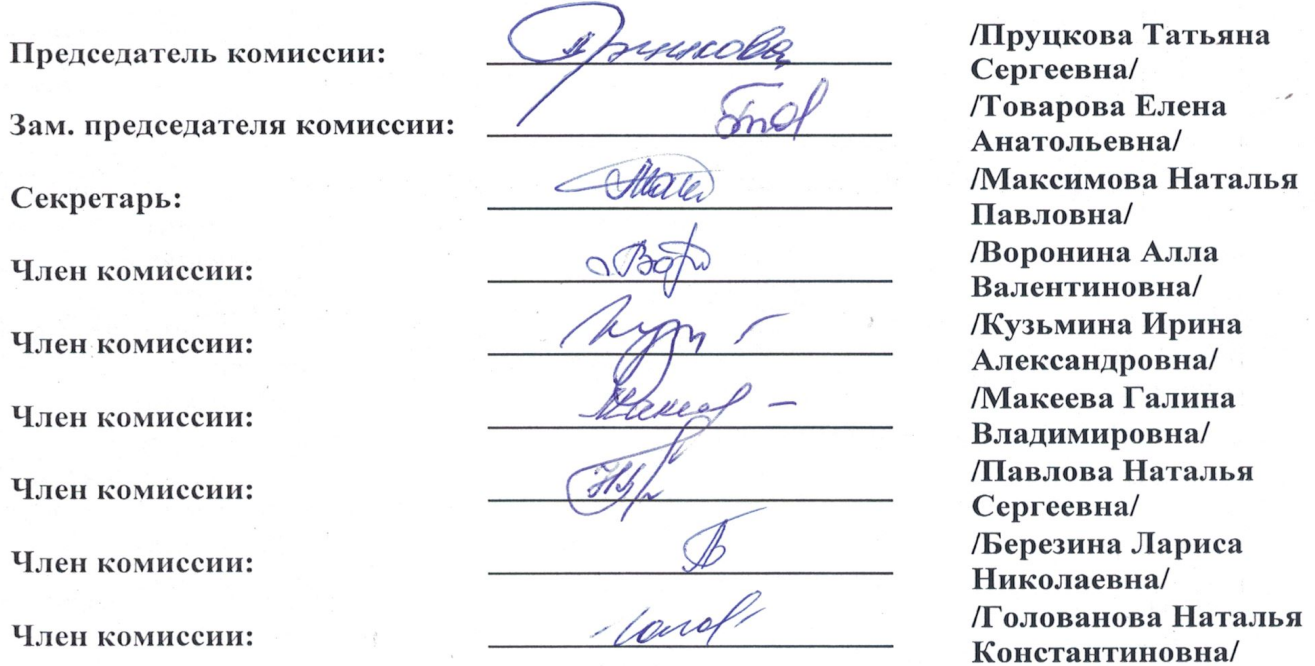 Председатель комиссии: /Пруцкова Татьяна
Сергеевна/
Зам. председателя комиссии: /Товарова Елена
Анатольевна/
Секретарь: /Максимова Наталья
Павловна/
Член комиссии: /Воронина Алла
Валентиновна/
Член комиссии: /Кузьмина Ирина
Александровна/
Член комиссии: /Макеева Галина
Владимировна/
Член комиссии: /Павлова Наталья
Сергеевна/
Член комиссии: /Березина Лариса
Николаевна/
Член комиссии: /Голованова Наталья
Константиновна/